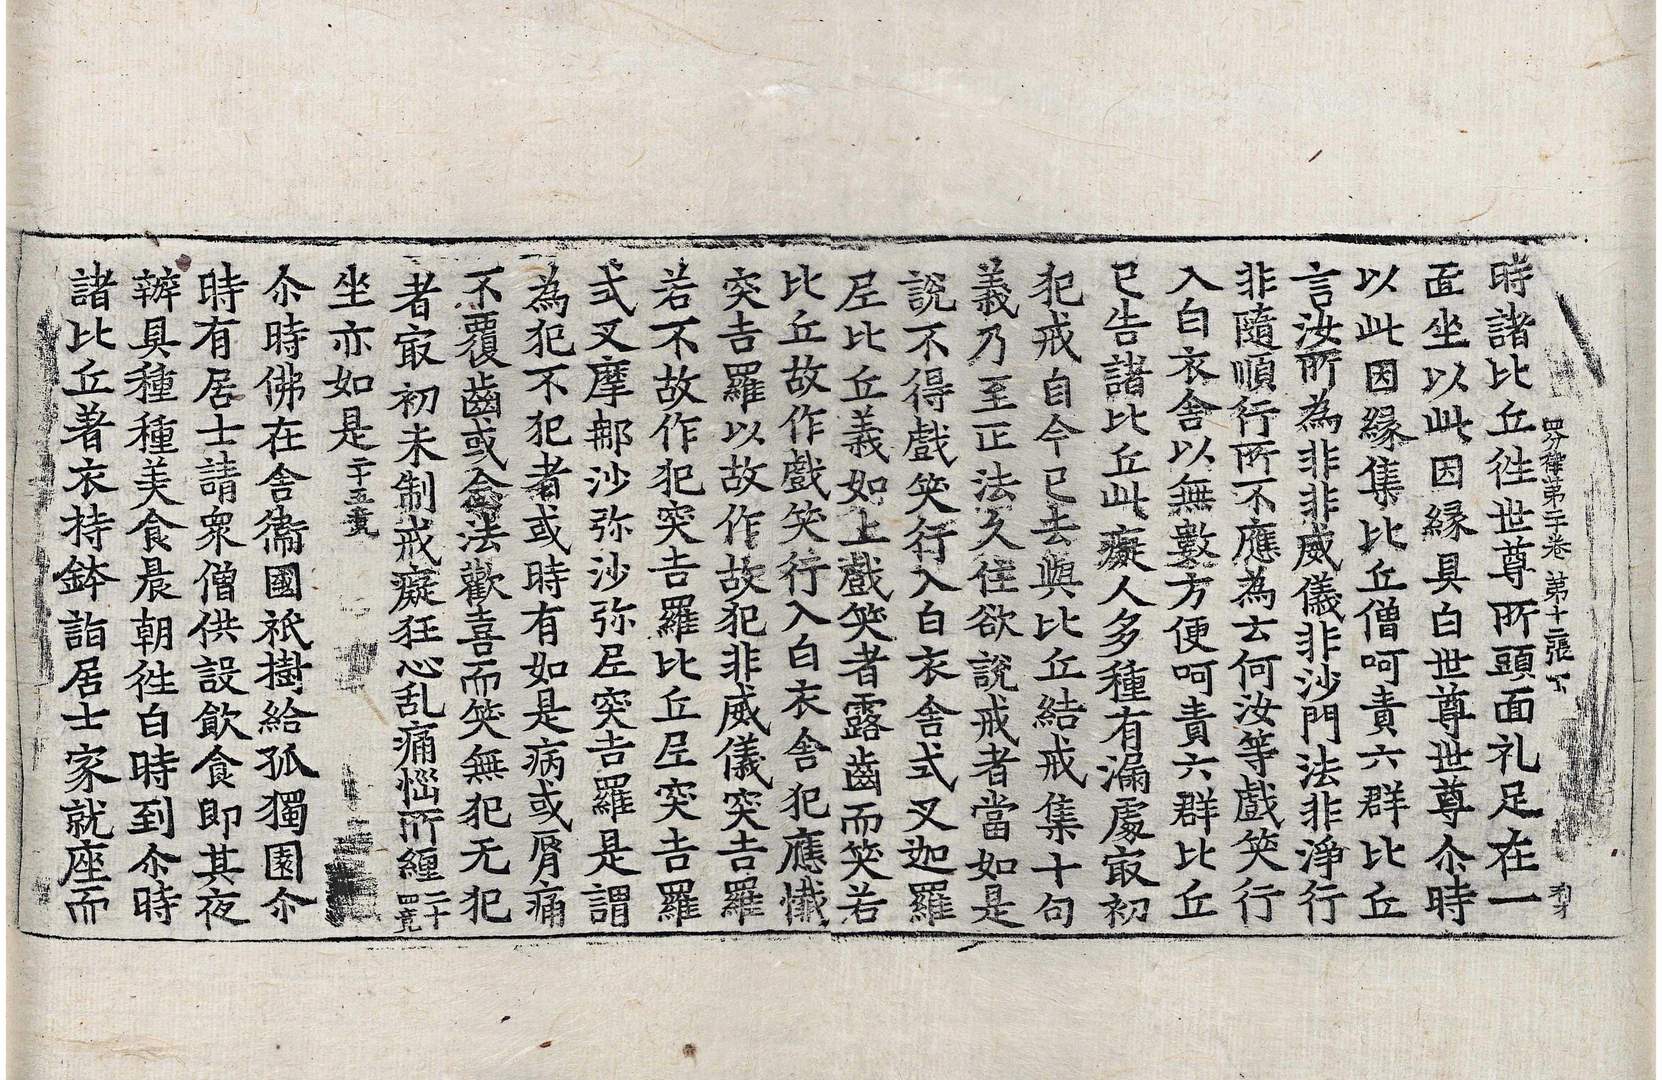 四分律第二十卷 第十二張 下
時諸比丘徃世尊所頭面礼足在一
面坐以此因縁具白世尊世尊尒時
以此因縁集比丘僧呵責六群比丘
言汝所為非非威儀非沙門法非淨行
非隨順行所不應為云何汝等戲笑行
入白衣舍以無數方便呵責六群比丘
已告諸比丘此癡人多種有漏處㝡初
犯戒自今已去與比丘結戒集十句
義乃至正法久住欲說戒者當如是
說不得戲笑行入白衣舍式叉迦羅
尼比丘義如上戲笑者露齒而笑若
比丘故作戲笑行入白衣舍犯應懺
突吉羅以故作故犯非威儀突吉羅
若不故作犯突吉羅比丘尼突吉羅
式叉摩那沙弥沙弥尼突吉羅是謂
為犯不犯者或時有如是病或脣痛
不覆齒或念法歡喜而笑無犯无犯
者㝡初未制戒癡狂心乱痛惱所纏二十四竟
坐亦如是二十五竟
尒時佛在舍衞國祇樹給孤獨園尒
時有居士請衆僧供設飲食即其夜
辦具種種美食晨朝徃白時到尒時
諸比丘著衣持鉢詣居士家就座而